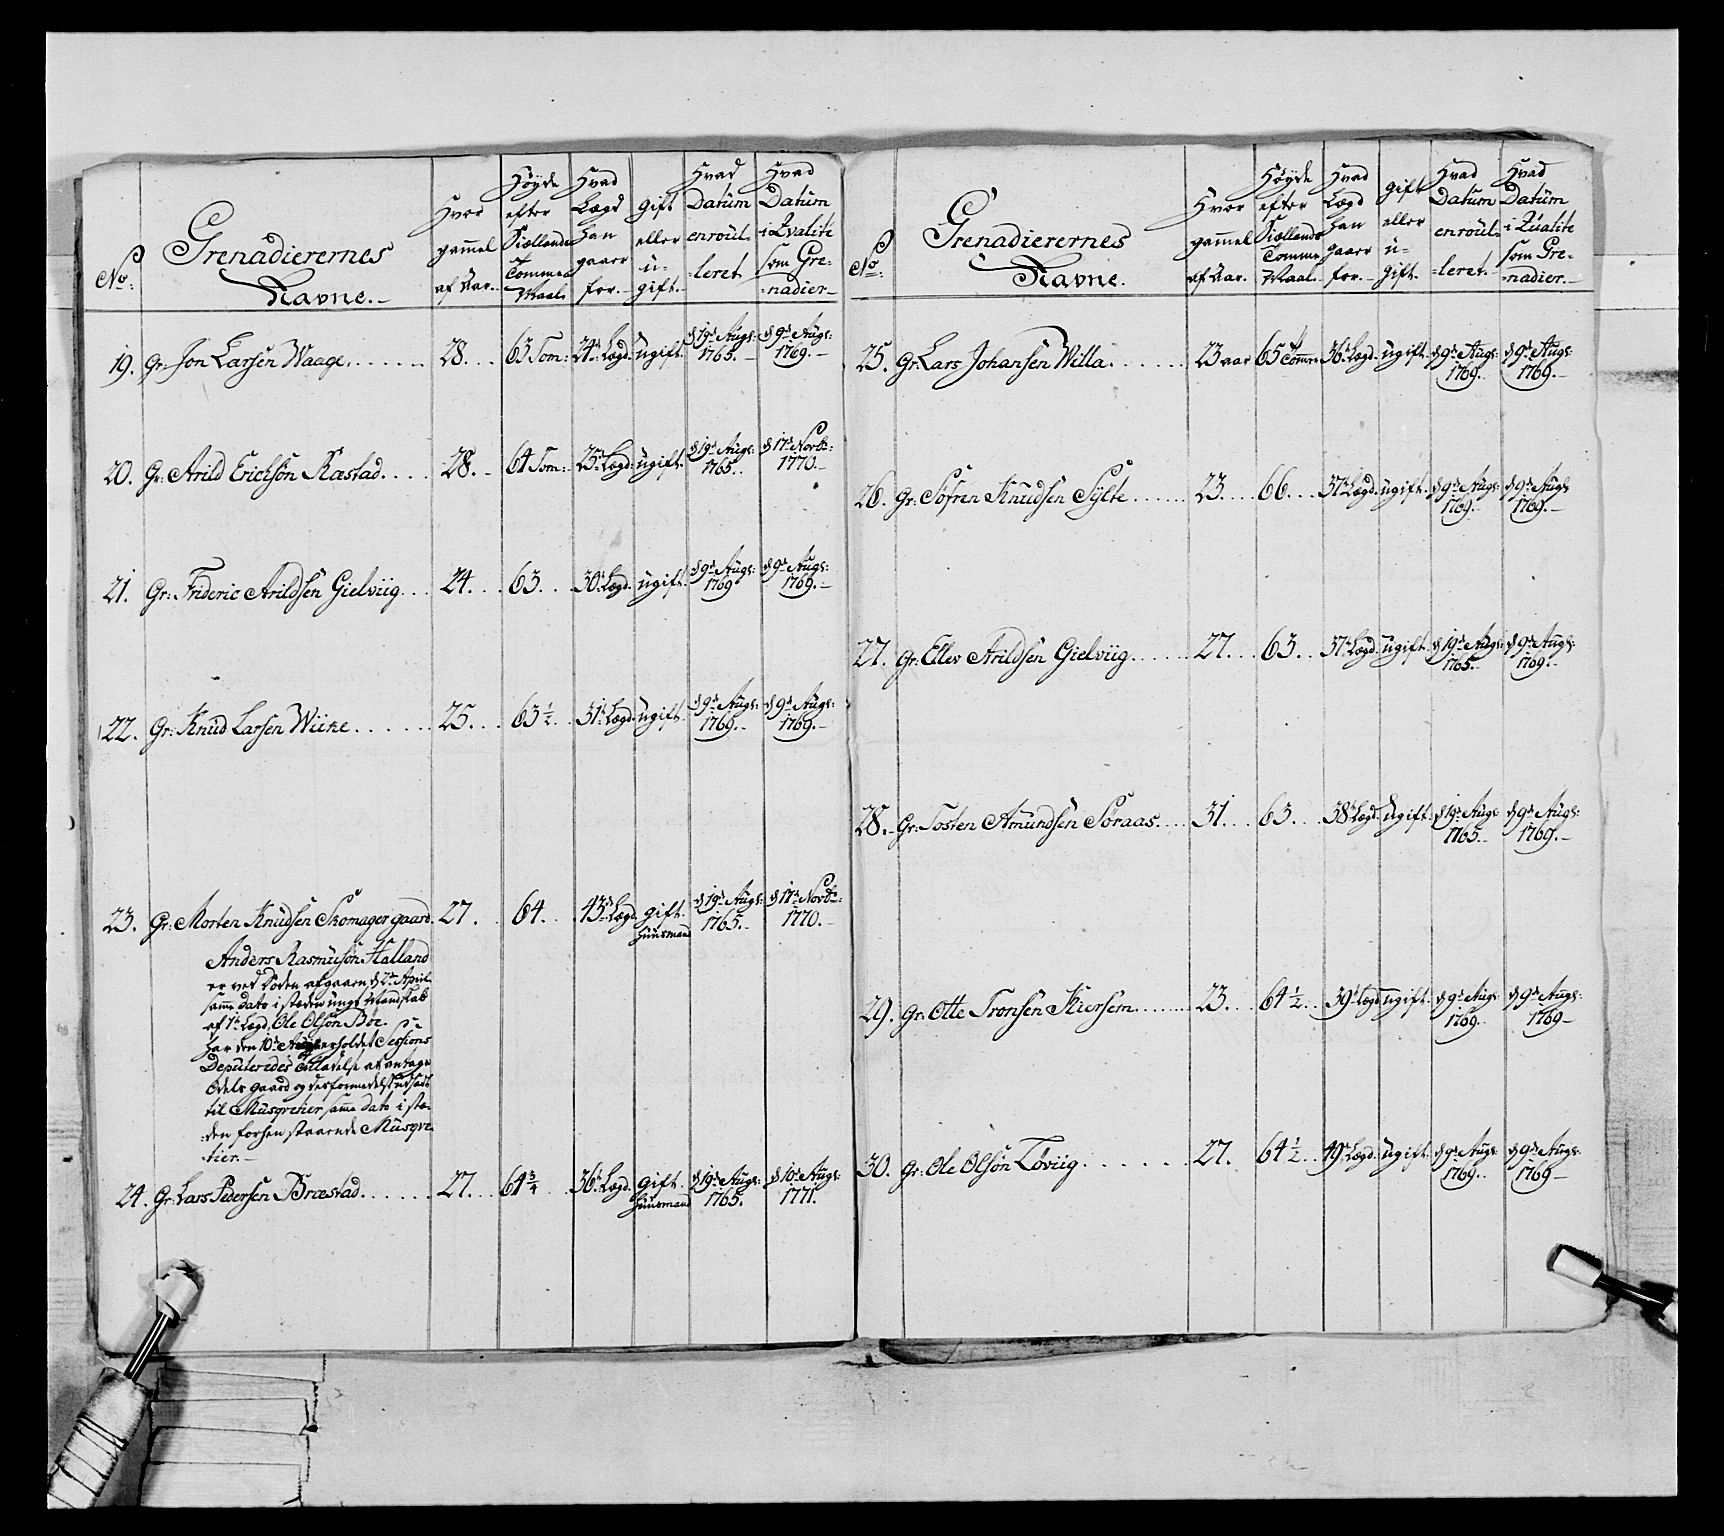 No:
Grenadierernes
Navne.
Hvor gammel af Aar.
Høyde efter Siællands Tomme Maal.
Hvad Lægd han gaaer for.
gift eller u- gift.
Hvad Datum enroul- leret
Hvad Datum i Qvalite som Gre- nadier
19. Gr: Jon Larsen Waage. 28. 63 Tom: 24de Lægd. ugift. d 19de Augs: 1765. d 9de Augs: 1769.
20. Gr: Arild Erichsøn Kastad. 28. 64 Tom: 25de Lægd. ugift. d 19de Augs: 1765. d 17de Novbr: 1770.
21. Gr: Frideric Arildsen Gielviig. 24. 63. 30de Lægd. ugift. d 9de Augs: 1769 d 9de Augs: 1769.
22. Gr: Knud Larsen Wiike. 25. 63 1/2. 31de Lægd. ugift. d 9de Augs: 1769. d 9de Augs: 1769.
23. Gr: Morten Knudsen Skomagergaard. 27. 64. 43de Lægd. gift. Huusmand d 19de Augs: 1765. d 17de Novbr: 1770.
Anders Rasmusøn Halland
er ved Døden afgaaen d 2de April
samme dato i stæden ungt Mandskab
af 1te Lægd, Ole Olsøn Boe.
har den 10de erholdet Sessions
Deputeredes tilladelse at antage
Odels gaard og desformedelst udsadt
til Musqvetier samme dato i stæ-
den forhen staaende Musqve-
tier.
24. Gr: Lars Pedersen Bræstad. 27. 64 3/4. 36de Lægd. gift Huusmand d 19de Augs: 1765. d 10de Augs: 1771.
No:
Grenadierernes
Navne.
Hvor gammel af Aar.
Høyde efter Siællands Tomme Maal.
Hvad Lægd han gaaer for.
gift eller u- gift.
Hvad Datum enroul- leret.
Hvad Datum i Qualite som Gre- nadier.
25. Gr: Lars Johansen Willa. 23 aar 65 Tomme 36te Lægd. ugift. d 9de Augs: 1769. d 9de Augs: 1769.
26. Gr: Sofren Knudsen Sylte. 23. 66. 37de Lægd. ugift. d 9de Augs: 1769. d 9de Augs 1769.
27. Gr: Ellev Arildsen Gielviig. 27. 63. 37de Lægd. ugift. d 19de Augs: 1765. d 9de Augs: 1769.
28. Gr: Tosten Amundsen Soraas. 31. 63. 38de Lægd. ugift. d 19de Augs 1765. d 9de Augs: 1769.
29. Gr: Otte Tronsen Kiersem. 23. 64 1/2. 39de Lægd. ugift. d 9de Augs: 1769. d 9de Augs: 1769
30. Gr: Ole Olsøn Løviig. 27. 64 1/2. 49de Lægd. ugift. d 9de Augs: 1769. d 9de Augs: 1769